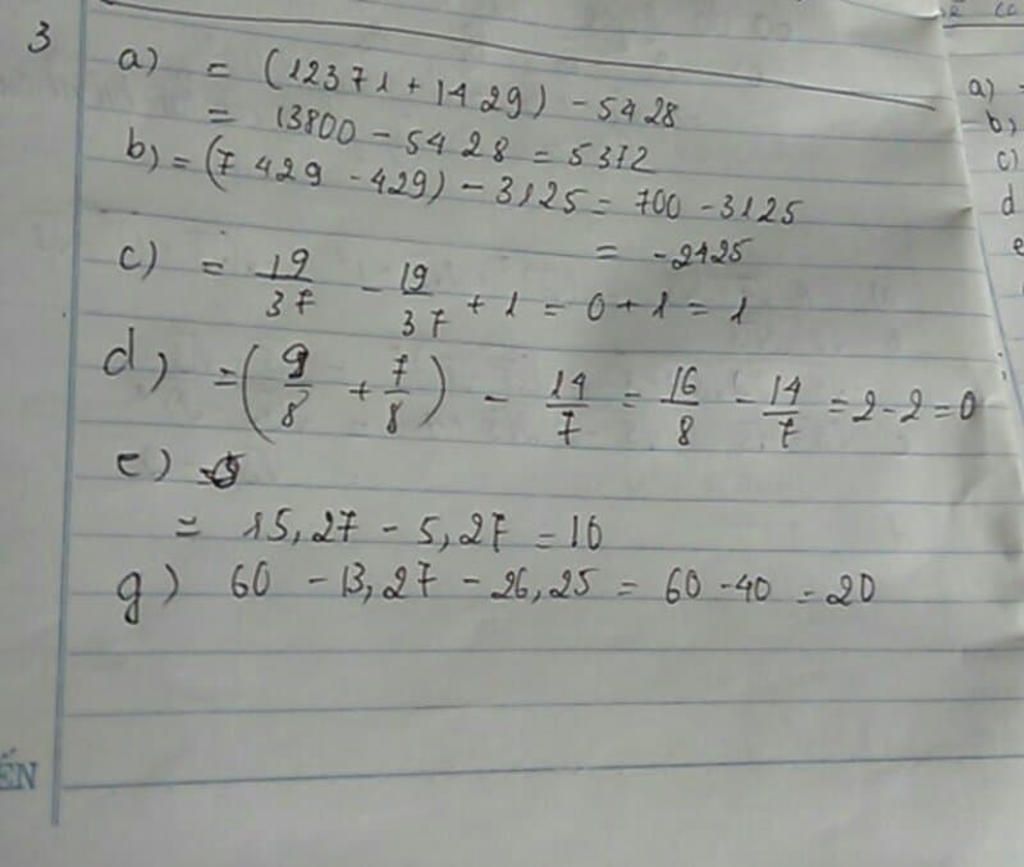 3
a) = (12371 + 1429) - 5428
= 13800 - 5428 = 5372
b) = (7 429 - 429) - 3125 = 700 - 3125
= -2425
c) = 19/37 - 19/37 + 1 = 0 + 1 = 1
d) = (9/8 + 7/8) - 14/7 = 16/8 - 14/7 = 2 - 2 = 0
e)
= 15,27 - 5,27 = 10
g) 60 - 13,27 - 26,25 = 60 - 40 = 20
ẾN
a) =
b)
c)
d
e